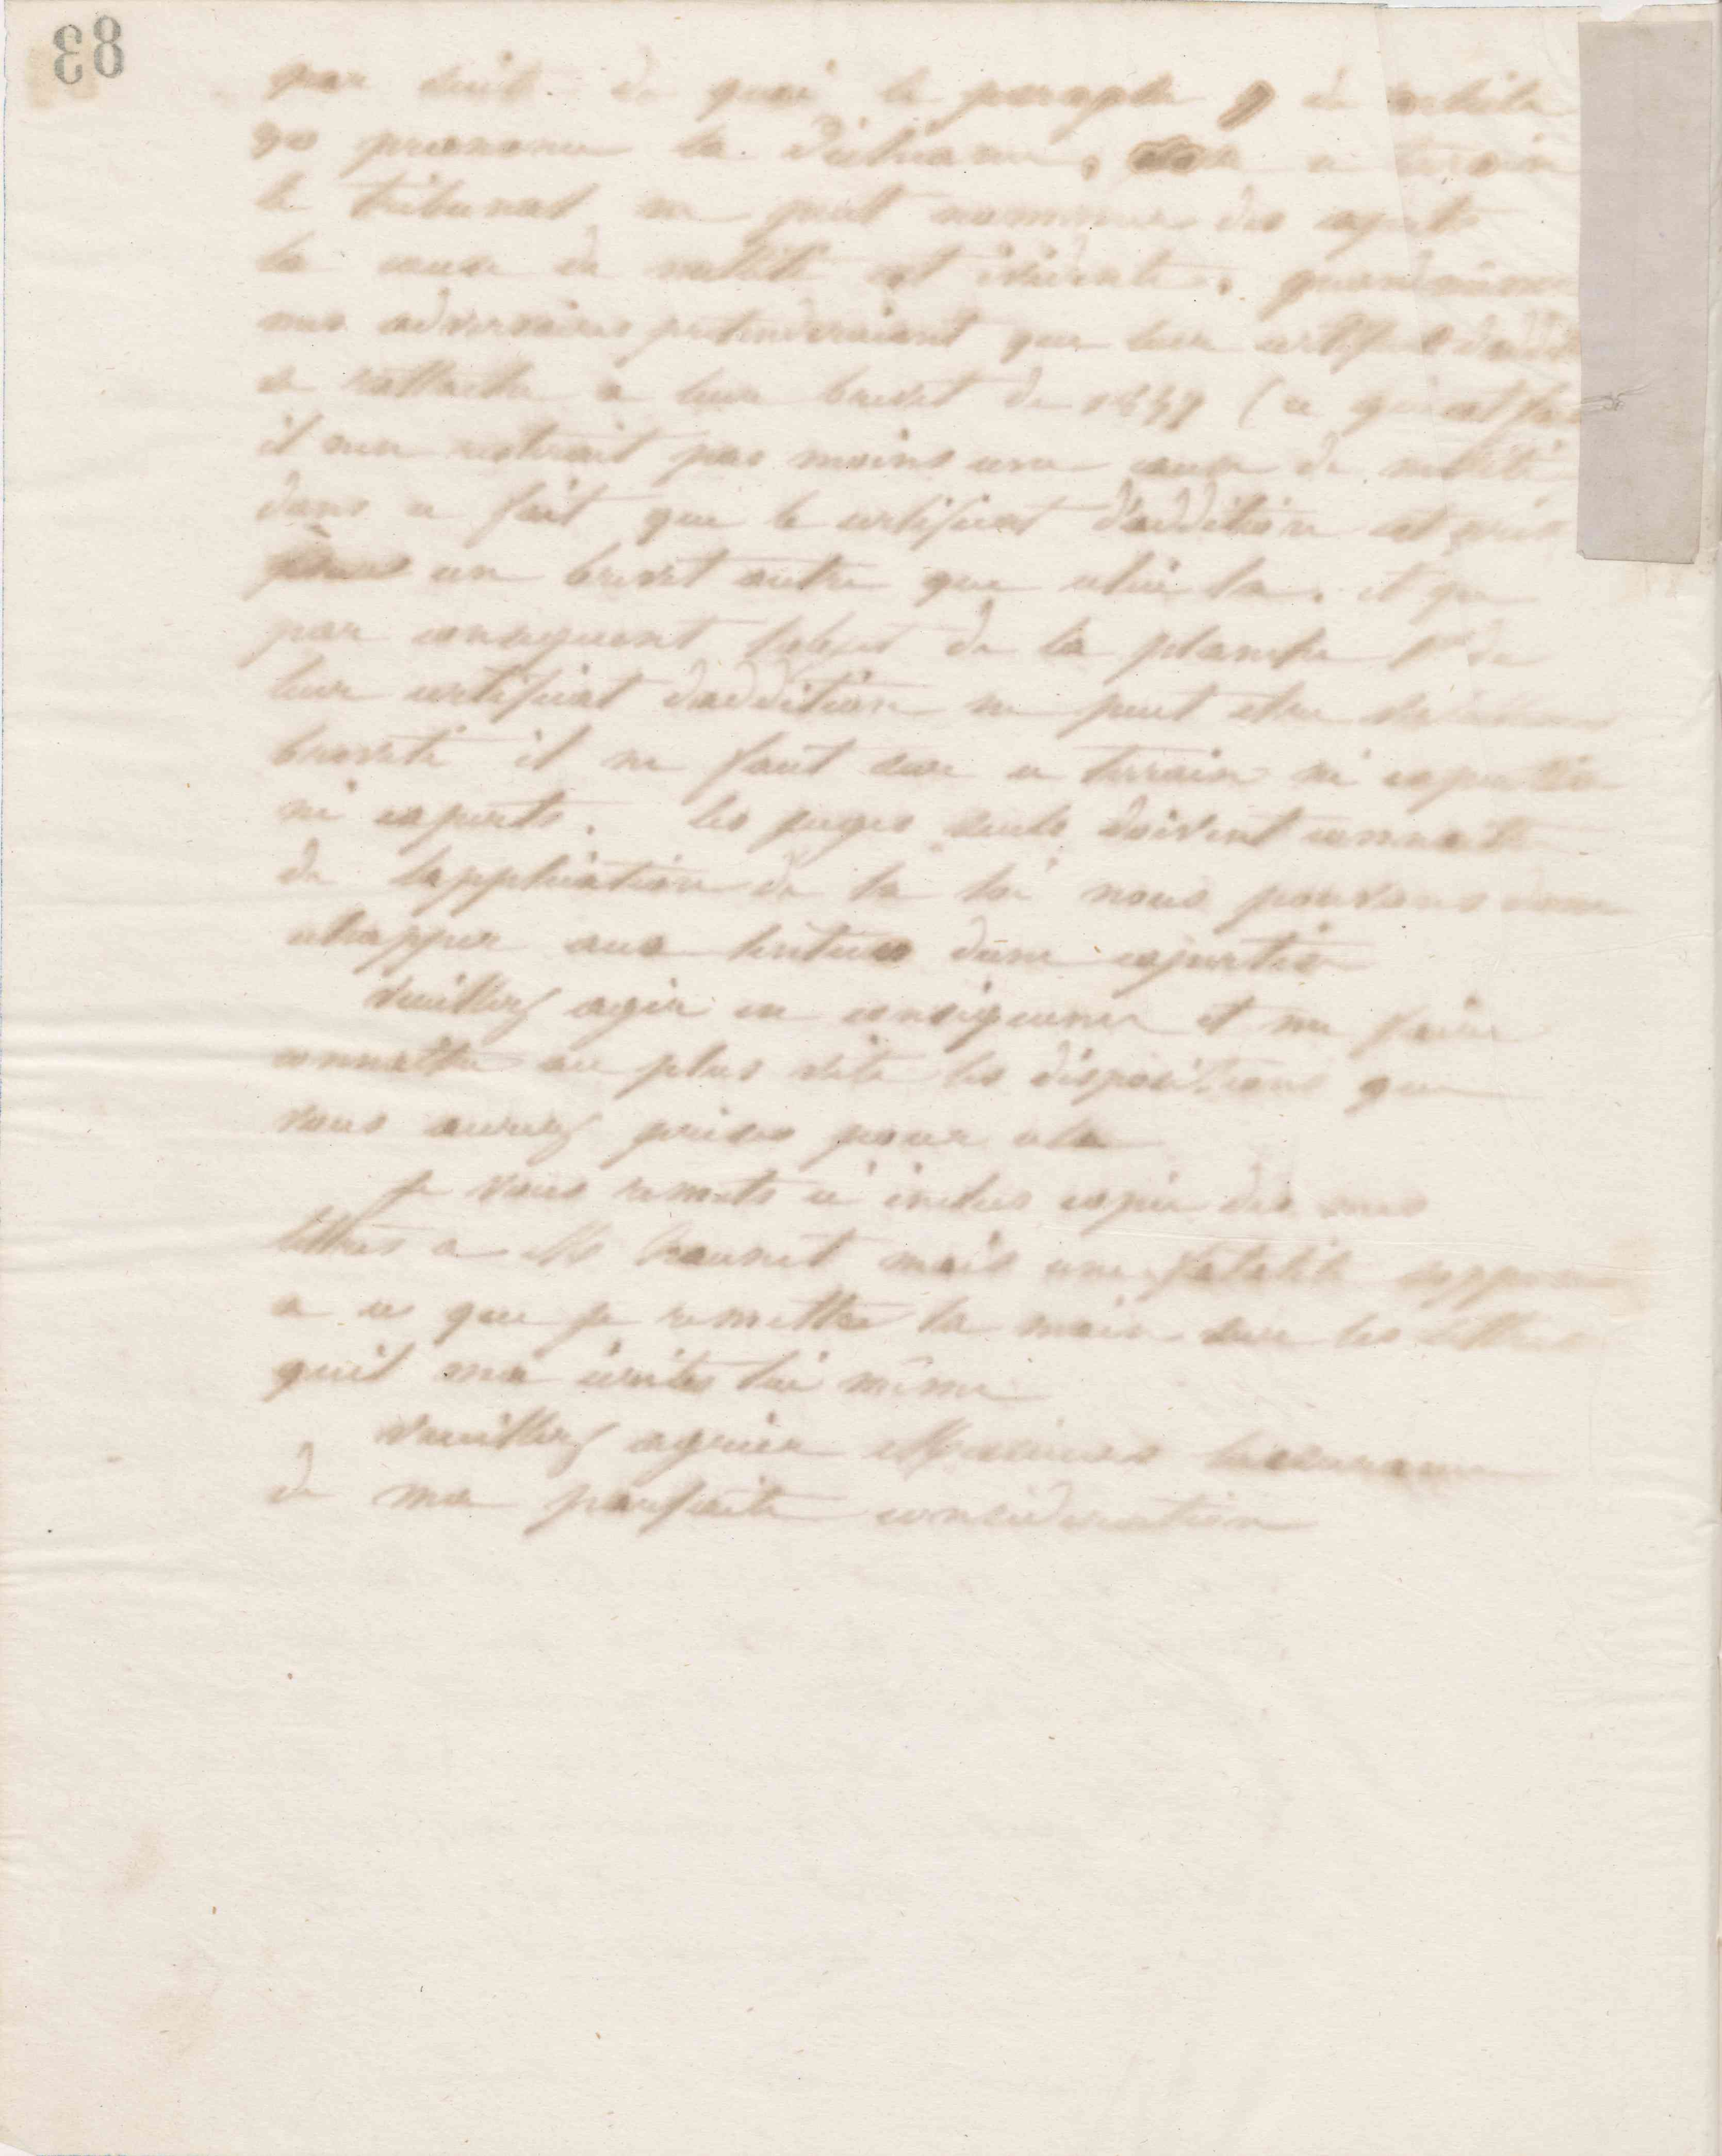 83
par suite de quoi le paragphe 7 de article
30 prononce la déchéance, ce terrain
le tribunal ne peut nommer des experts
la cause de nullité est évidente. quand même
nos adversaires pretenderaient que leur certificat
se rattache a leur brevet de 1849 (ce qui est
il nen resterait pas moins une cause de nullité
dans ce fait que le certificat d'addition est
un brevet autre que celui la. et que
par consequent lobjet de la planche 1re de
leur certificat daddition ne peut etre
breveté il ne faut sur ce terrain ni expertise
ni experts. les juges seuls doivent connaitre
de lapplication de la loi nous pouvons donc
echapper aux lenteurs dune expertise
veuillez agir en consequence et me faire
connaitre au plus vite les dispositions que
vous aurez prises pour cela
Je vous remets ci inclus copie des mes
lettres a Mr mais une fatalité soppose
a ce que je remettre la main sur les lettres
quil ma écrites lui même
veuillez agréer Messieurs lassurance
de ma parfaite consideration